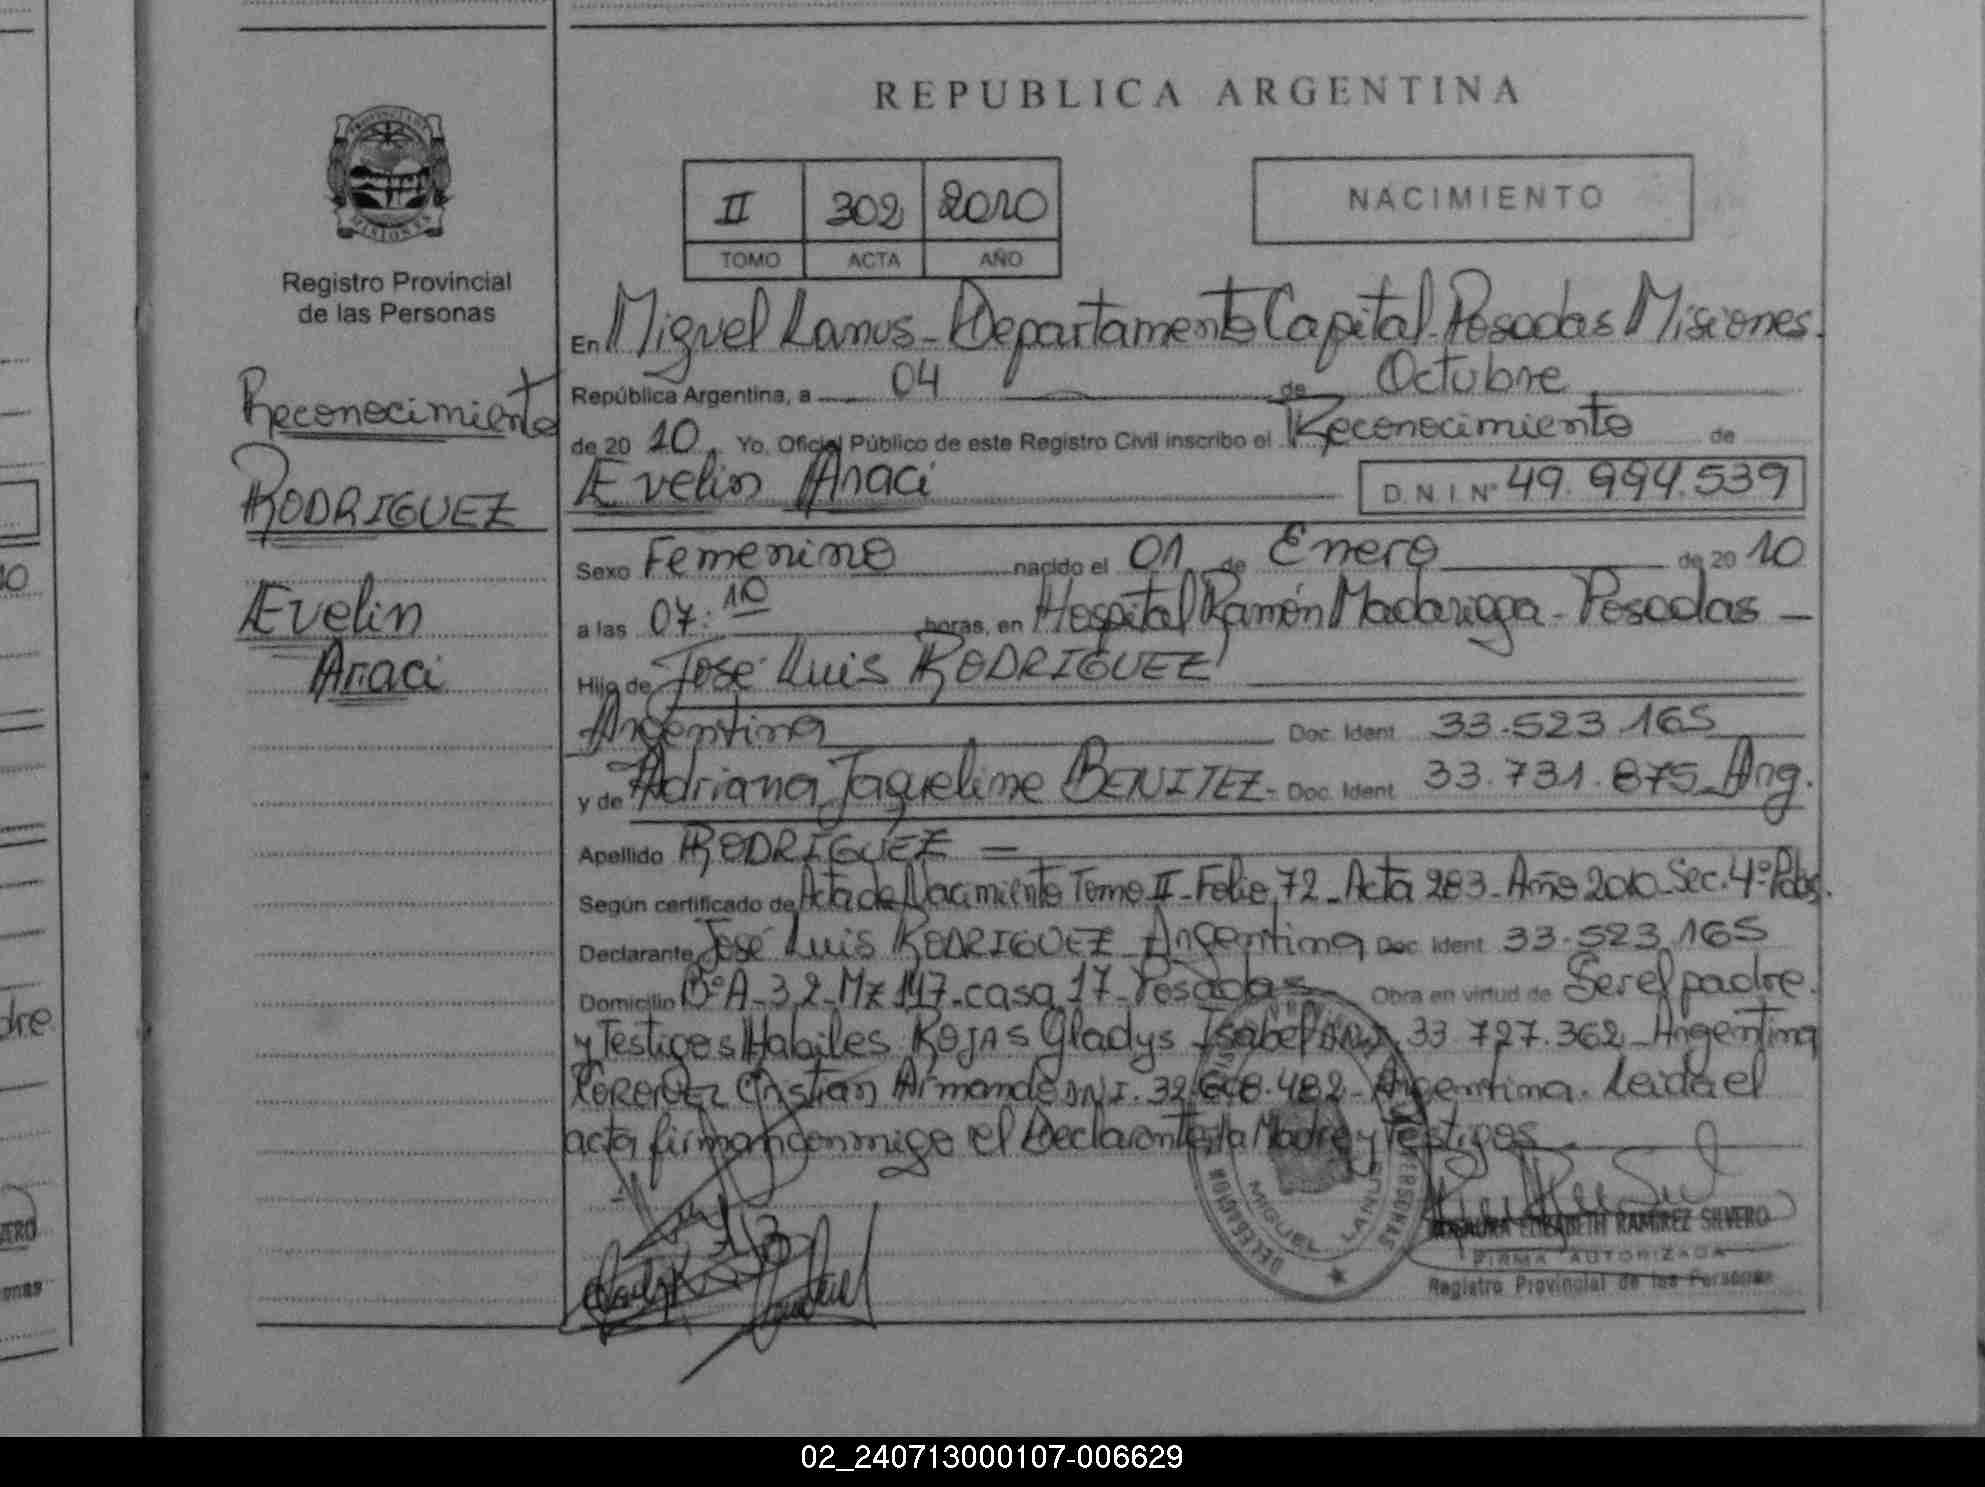 REPUBLICA ARGENTINA
PROVINCIA DE MISIONES
Registro Provincial
de las Personas
II 302 2010
TOMO ACTA AÑO
NACIMIENTO
Reconocimiento
RODRIGUEZ
Evelin
Araci
En Miguel Lanus - Departamento Capital - Posadas Misiones.
República Argentina, a 04 de Octubre
de 20 10. Yo, Oficial Público de este Registro Civil inscribo el Reconocimiento de
Evelin Araci D.N.I. Nº 49.994.539
Sexo Femenino nacido el 01 de Enero de 20 10
a las 07:10 horas, en Hospital Ramón Madariaga - Posadas -
Hijo de José Luis RODRIGUEZ
Argentina Doc. Ident. 33.523.165
y de Adriana Jaqueline BENITEZ - Doc. Ident. 33.731.875 - Arg.
Apellido RODRIGUEZ -
Según certificado de Acta de Nacimiento Tomo II - Folio 72 - Acta 283 - Año 2010 - Sec. 4º Pdas.
Declarante José Luis RODRIGUEZ - Argentina Doc. Ident. 33.523.165
Domicilio Bº A-3,2 - Mz 147 - casa 17 - Posadas - Obra en virtud de Ser el padre.
y Testigos Habiles ROJAS Gladys Isabel DNI 33 727.362 - Argentina
Cristian Armando DNI. 32 .482 - Argentina. Leida el
acta firman conmigo el Declarante, la Madre y Testigos
DELEGACION MIGUEL LANUS
ROSAURA ELIZABETH RAMIREZ SILVERO
FIRMA AUTORIZADA
Registro Provincial de las Personas
02_240713000107-006629